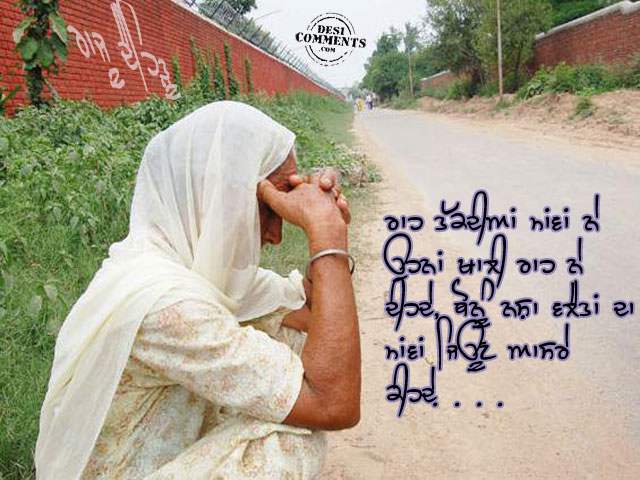 DESI COMMENTS .COM
ਰਾਹ ਤੱਕਦੀਆਂ ਮਾਂਵਾਂ ਨੇ
ਉਹਨਾਂ ਖਾਲੀ ਰਾਹ ਨੇ
ਦੀਹਦੇ, ਥੋਨੂੰ ਨਸ਼ਾ ਵਲੈਤਾਂ ਦਾ
ਮਾਂਵਾਂ ਜਿਊਣ ਆਸਰੇ
ਕੀਹਦੇ . . . .